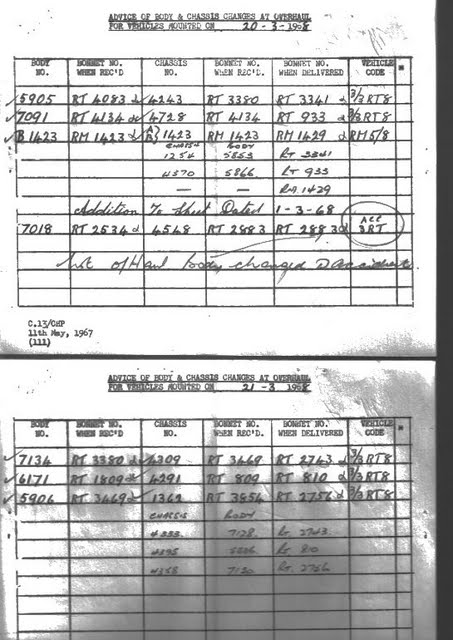 ADVICE OF BODY & CHASSIS CHANGES AT OVERHAUL
FOR VEHICLES MOUNTED ON 20-3-1968
BODY NO. BONNET NO. WHEN REC'D CHASSIS NO. BONNET NO. WHEN REC'D. BONNET NO. WHEN DELIVERED VEHICLE CODE *
✓5905 RT 4083 d ✓4243 RT 3380 RT 3341 d 3/3RT8
✓7091 RT 4134 d ✓4728 RT 4134 RT 933 d 3/3RT8
✓B1423 RM 1423 d A/B} 1423 RM 1423 RM 1429 d RM5/8
CHASSIS BODY
1254 5853 RT 3341
4570 5866 RT 933
— — RM 1429
Addition To Sheet Dated 1-3-68
7018 RT 2534 d ✓4548 RT 2883 RT 2883 d ACC 3RT
Not O/Haul body changed Accident
C.13/CHP
11th May, 1967
(111)
ADVICE OF BODY & CHASSIS CHANGES AT OVERHAUL
FOR VEHICLES MOUNTED ON 21-3 1968
BODY NO. BONNET NO. WHEN REC'D CHASSIS NO. BONNET NO. WHEN REC'D. BONNET NO. WHEN DELIVERED VEHICLE CODE *
✓7134 RT 3380 d ✓4309 RT 3469 RT 2743 d 3/3RT8
✓6171 RT 1809 d ✓4291 RT 809 RT 810 d 3/3RT8
✓5906 RT 3469 d ✓1362 RT 3854 RT 2756 d 3/3RT8
CHASSIS BODY
4333 7128 RT 2743
4395 RT 810
4358 7130 RT 2756